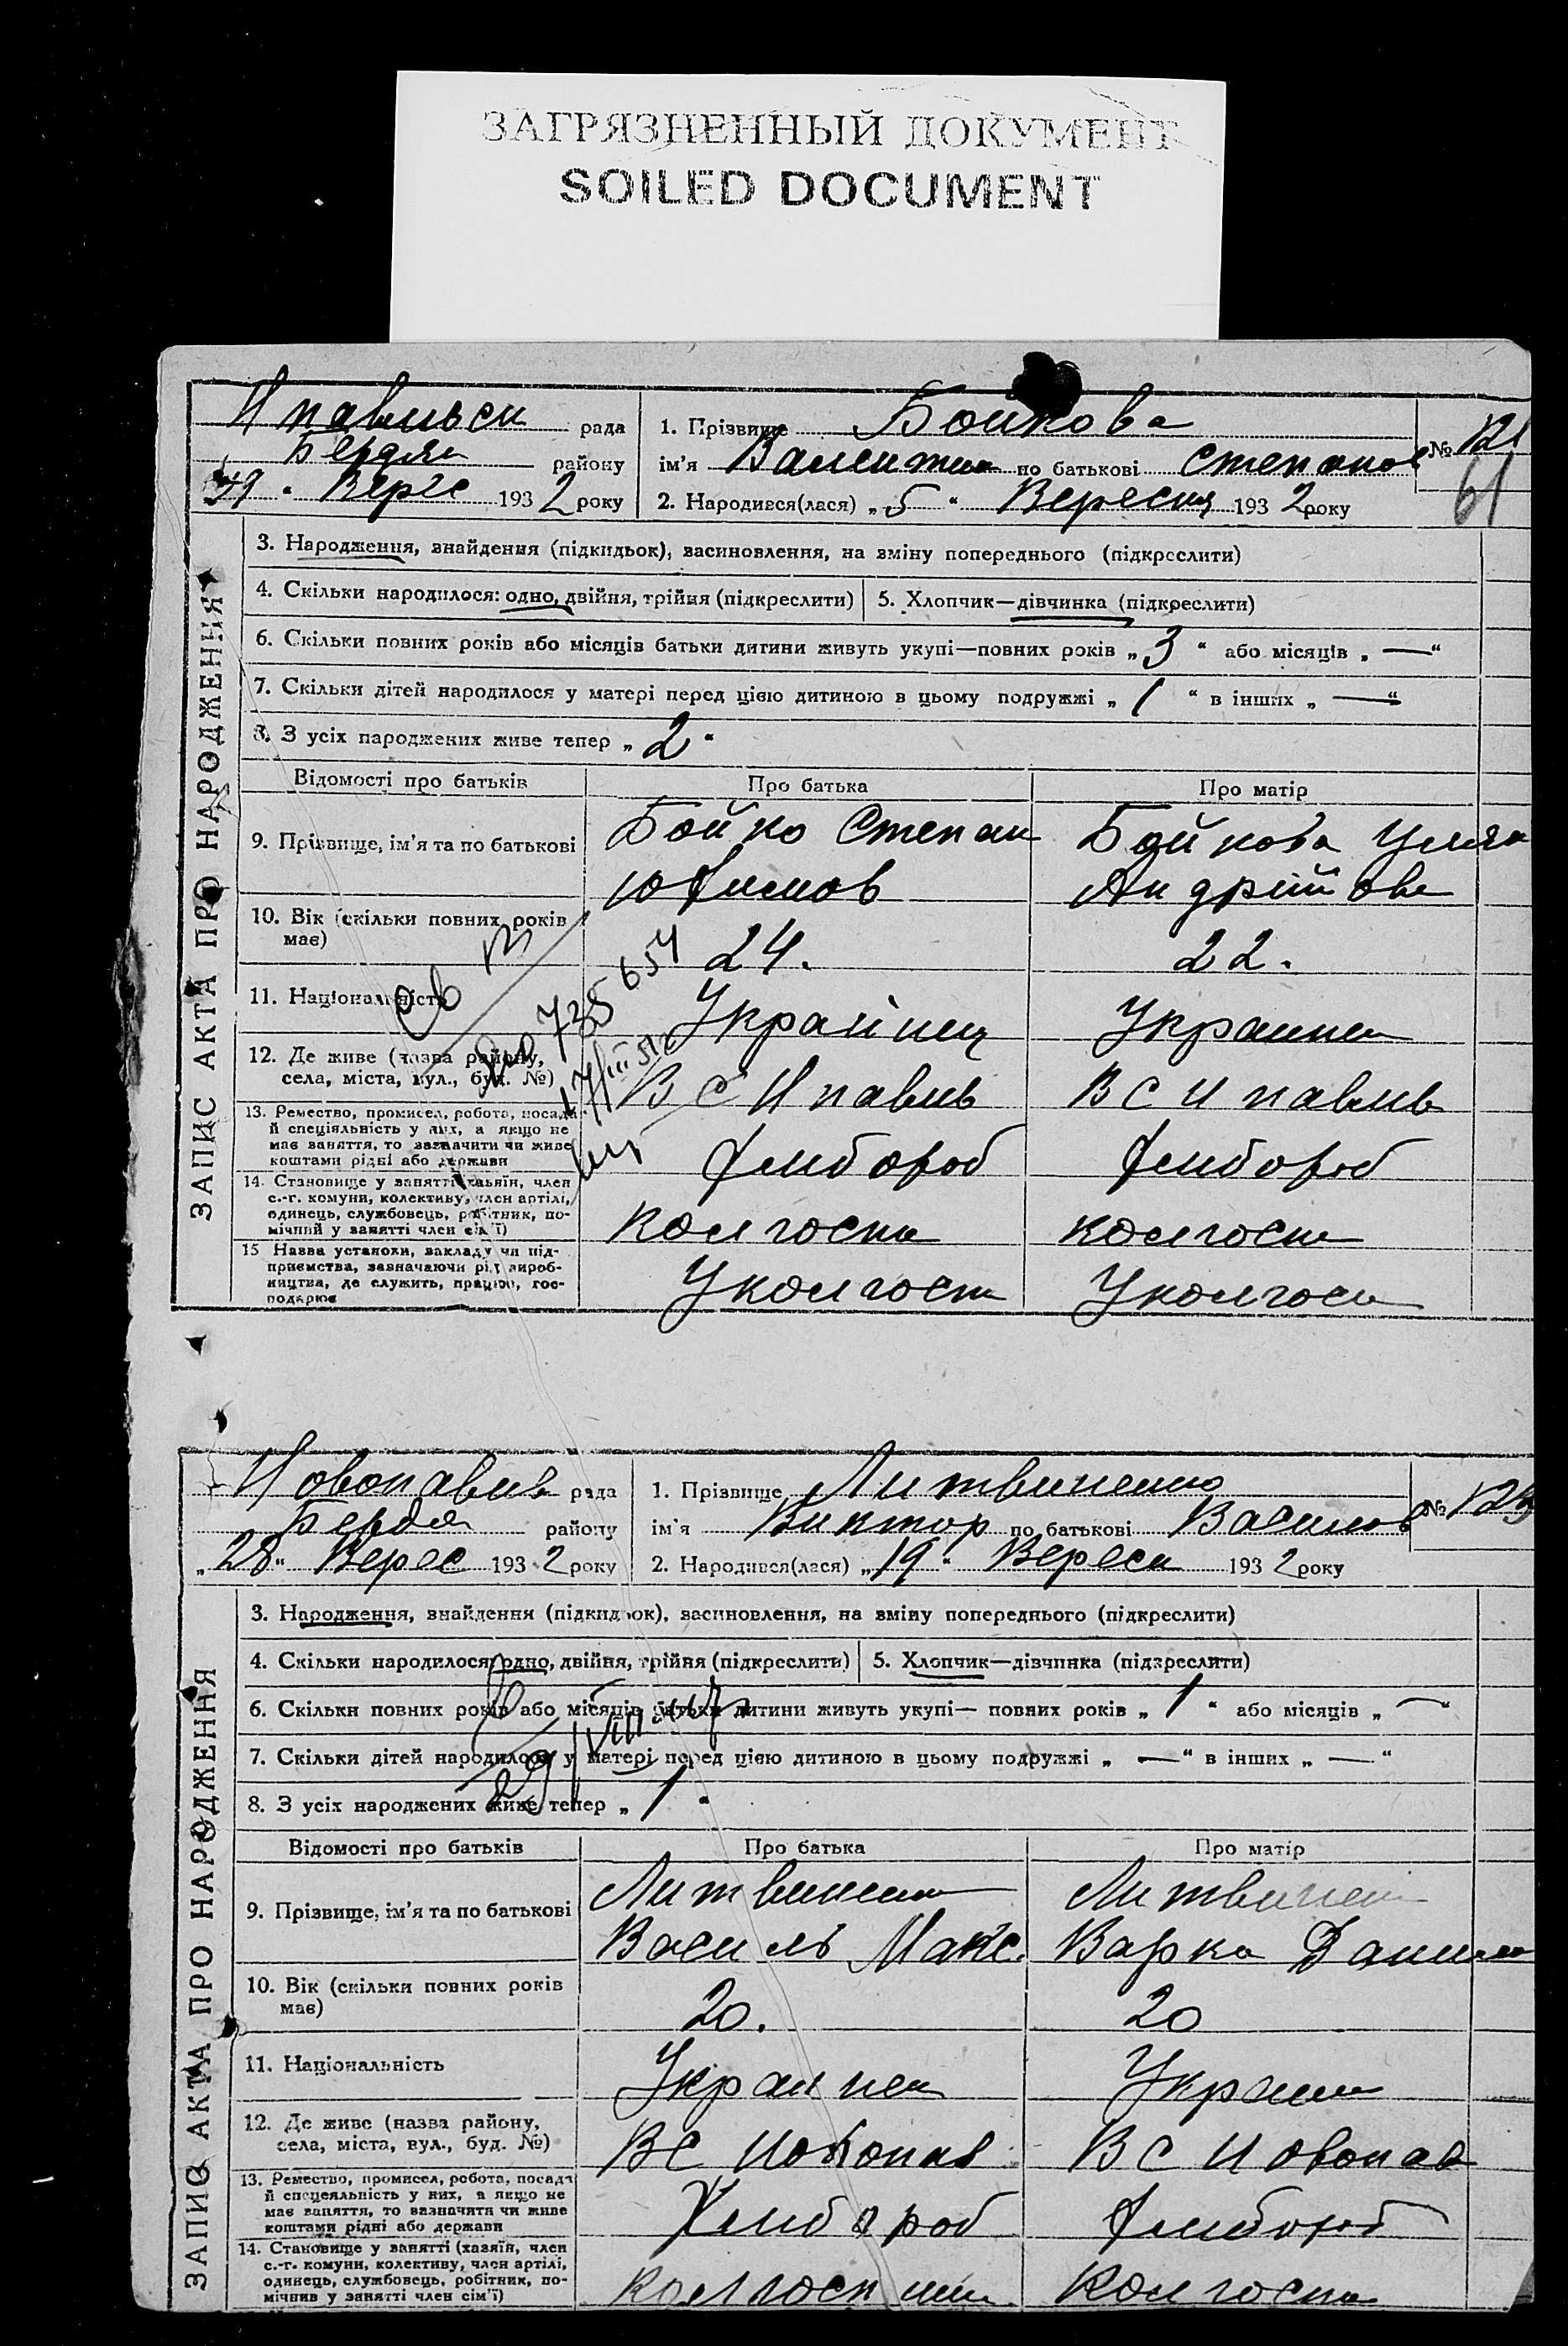 ЗАГРЯЗНЕННЫЙ ДОКУМЕНТ
SOILED DOCUMENT
Н павлівськ рада
Бердян району
193 2 року
1. Прізвище Бойкова
ім'я Валентина по батькові Степанов
2. Народився(лася) „5“ Вересня 193 2 року
№ 121
61
ЗАПИС АКТА ПРО НАРОДЖЕННЯ
3. Народження, знайдення (підкидьок), засиновлення, на зміну попереднього (підкреслити)
4. Скільки народилося: одно, двійня, трійня (підкреслити)
5. Хлопчик—дівчинка (підкреслити)
6. Скільки повних років або місяців батьки дитини живуть укупі—повних років „3“ або місяців „—“
7. Скільки дітей народилося у матері перед цією дитиною в цьому подружжі „1“ в інших „—“
8. З усіх народжених живе тепер „2“
Відомості про батьків Про батька Про матір
9. Прізвище, ім'я та по батькові
Бойко Степан
Юхимов
Бойкова Уляна
Андрійовн
10. Вік (скільки повних років
має)
24.
22.
11. Національність
Українец
Украинка
12. Де живе (назва району,
села, міста, вул., буд. №)
В С Н павлів
В С Н павлів
13. Ремество, промисел, робота, посада
й спеціяльність у них, а якщо не
має заняття, то зазначити чи живе
коштами рідні або держави
Хлибороб
Хлибороб
14. Становище у занятті (хазяїн, член
с.-г. комуни, колективу, член артілі,
одинець, службовець, робітник, по-
мічний у занятті член сім'ї)
колгоспн
колгоспн
15 Назва установи, закладу чи під-
приємства, зазначаючи рід вироб-
ництва, де служить, працює, гос-
подарює
У колгосп
У колгосп
735654
17/III 51
Новопавлів рада
Бердя району
„28“ Верес 193 2 року
1. Прізвище Литвиненко
ім'я Виктор по батькові Василов
2. Народився(лася) „19“ Вересн 193 2 року
№
ЗАПИС АКТА ПРО НАРОДЖЕННЯ
3. Народження, знайдення (підкидьок), засиновлення, на зміну попереднього (підкреслити)
4. Скільки народилося: одно, двійня, трійня (підкреслити)
5. Хлопчик—дівчинка (підкреслити)
6. Скільки повних років або місяців батьки дитини живуть укупі— повних років „1“ або місяців „—“
7. Скільки дітей народилося у матері перед цією дитиною в цьому подружжі „—“ в інших „—“
8. З усіх народжених живе тепер „1“
29/VIII
Відомості про батьків Про батька Про матір
9. Прізвище, ім'я та по батькові
Литвиненко
Василь Макс.
Литвинен
Варка Данило
10. Вік (скільки повних років
має)
20.
20
11. Національність
Украинец
Украин
12. Де живе (назва району,
села, міста, вул., буд. №)
ВС Новопав
ВС Новопав
13. Ремество, промисел, робота, посада
й спецеяльність у них, а якщо не
має заняття, то зазначити чи живе
коштами рідні або держави
Хлибороб
Хлибороб
14. Становище у занятті (хазяїн, член
с.-г. комуни, колективу, член артілі,
одинець, службовець, робітник, по-
мічнив у занятті член сім'ї)
колгоспник
колгоспн